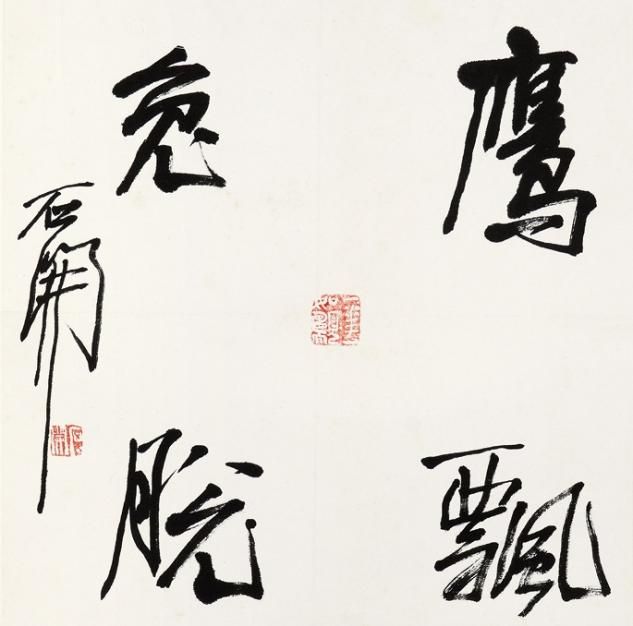 鷹飄
兔脱
石開